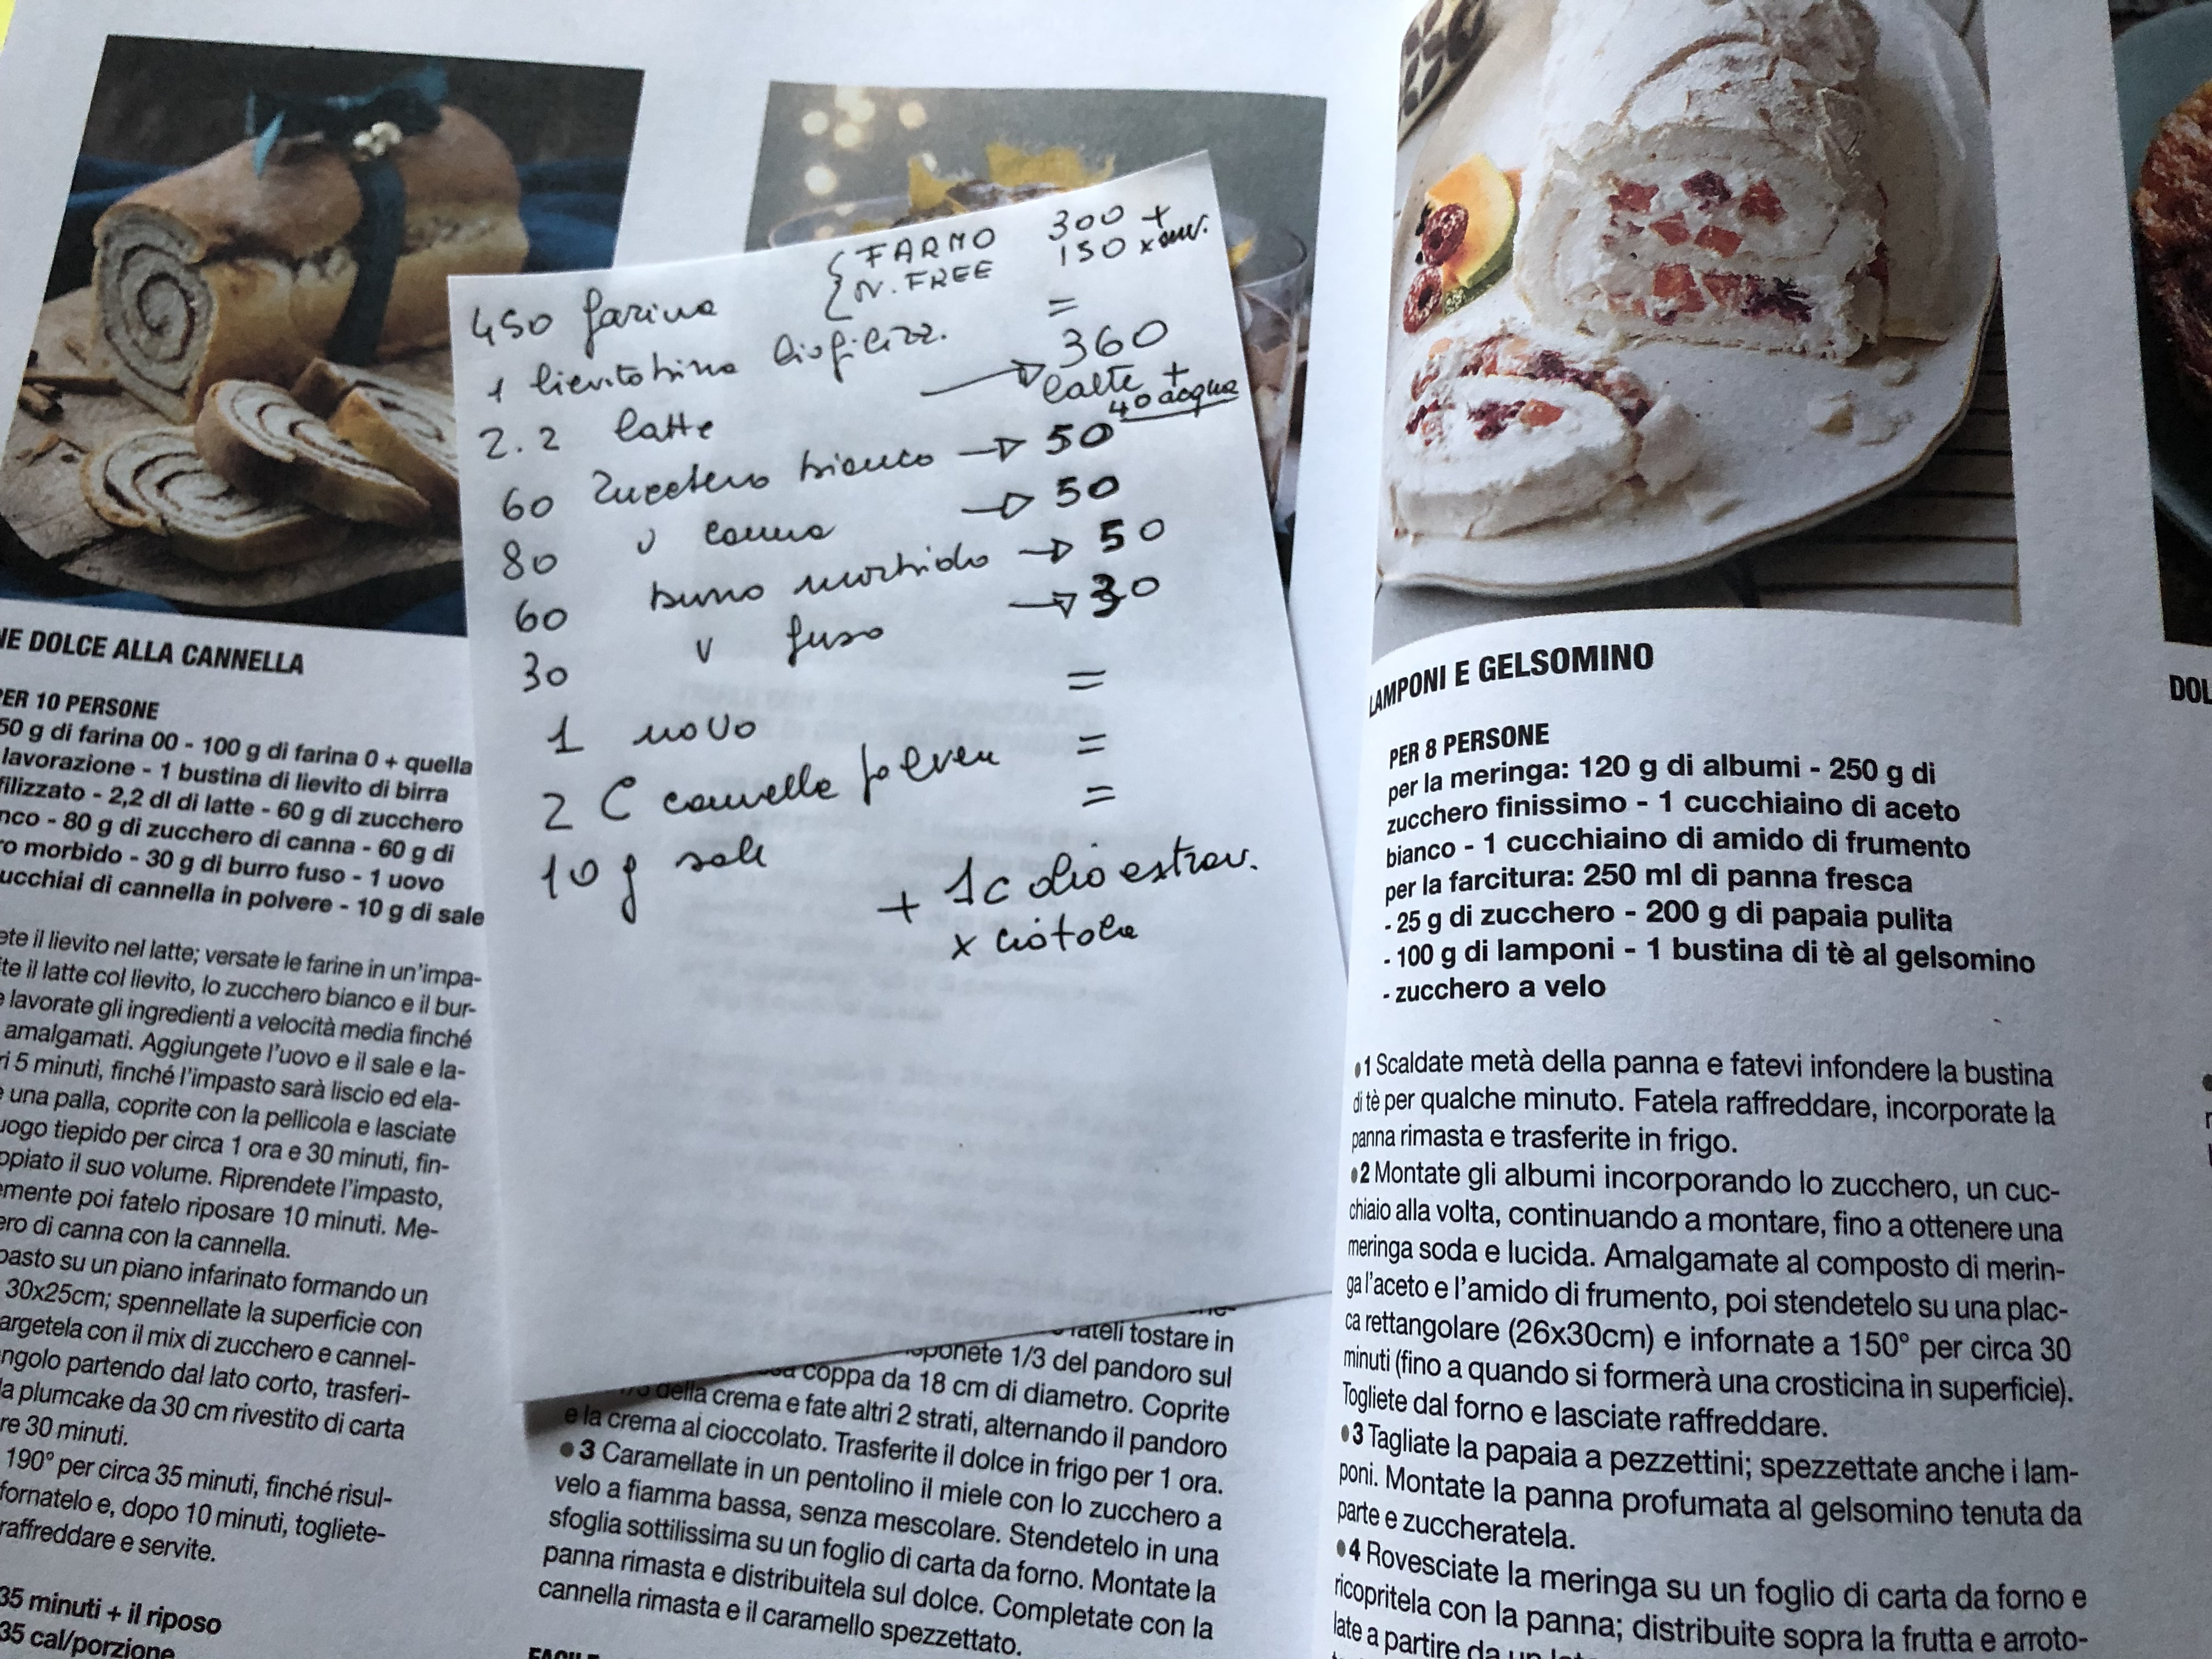 450 farina { FARMO 300 +
N. FREE 150 x
1 lievito birra liofilizz. =
2.2 latte → 360
latte +
40 acqua
60 zucchero bianco → 50
80 " canna → 50
60 burro morbido → 50
30 " fuso → 30
1 uovo =
2 C cannella polvere =
10 g sale =
+ 1c olio estrav.
x ciotola
NE DOLCE ALLA CANNELLA
PER 10 PERSONE
50 g di farina 00 - 100 g di farina 0 + quella
lavorazione - 1 bustina di lievito di birra
filizzato - 2,2 dl di latte - 60 g di zucchero
nco - 80 g di zucchero di canna - 60 g di
ro morbido - 30 g di burro fuso - 1 uovo
ucchiai di cannella in polvere - 10 g di sale
ete il lievito nel latte; versate le farine in un'impa-
te il latte col lievito, lo zucchero bianco e il bur-
e lavorate gli ingredienti a velocità media finché
amalgamati. Aggiungete l'uovo e il sale e la-
ri 5 minuti, finché l'impasto sarà liscio ed ela-
e una palla, coprite con la pellicola e lasciate
uogo tiepido per circa 1 ora e 30 minuti, fin-
ppiato il suo volume. Riprendete l'impasto,
emente poi fatelo riposare 10 minuti. Me-
ero di canna con la cannella.
pasto su un piano infarinato formando un
30x25cm; spennellate la superficie con
argetela con il mix di zucchero e cannel-
ngolo partendo dal lato corto, trasferi-
la plumcake da 30 cm rivestito di carta
re 30 minuti.
190° per circa 35 minuti, finché risul-
fornatelo e, dopo 10 minuti, togliete-
raffreddare e servite.
35 minuti + il riposo
35 cal/porzione
fateli tostare in
sponete 1/3 del pandoro sul
coppa da 18 cm di diametro. Coprite
della crema e fate altri 2 strati, alternando il pandoro
e la crema al cioccolato. Trasferite il dolce in frigo per 1 ora.
●3 Caramellate in un pentolino il miele con lo zucchero a
velo a fiamma bassa, senza mescolare. Stendetelo in una
sfoglia sottilissima su un foglio di carta da forno. Montate la
panna rimasta e distribuitela sul dolce. Completate con la
cannella rimasta e il caramello spezzettato.
FACILE
LAMPONI E GELSOMINO
PER 8 PERSONE
per la meringa: 120 g di albumi - 250 g di
zucchero finissimo - 1 cucchiaino di aceto
bianco - 1 cucchiaino di amido di frumento
per la farcitura: 250 ml di panna fresca
- 25 g di zucchero - 200 g di papaia pulita
- 100 g di lamponi - 1 bustina di tè al gelsomino
- zucchero a velo
●1 Scaldate metà della panna e fatevi infondere la bustina
di tè per qualche minuto. Fatela raffreddare, incorporate la
panna rimasta e trasferite in frigo.
●2 Montate gli albumi incorporando lo zucchero, un cuc-
chiaio alla volta, continuando a montare, fino a ottenere una
meringa soda e lucida. Amalgamate al composto di merin-
ga l'aceto e l'amido di frumento, poi stendetelo su una plac-
ca rettangolare (26x30cm) e infornate a 150° per circa 30
minuti (fino a quando si formerà una crosticina in superficie).
Togliete dal forno e lasciate raffreddare.
●3 Tagliate la papaia a pezzettini; spezzettate anche i lam-
poni. Montate la panna profumata al gelsomino tenuta da
parte e zuccheratela.
●4 Rovesciate la meringa su un foglio di carta da forno e
ricopritela con la panna; distribuite sopra la frutta e arroto-
late a partire da un
DOL